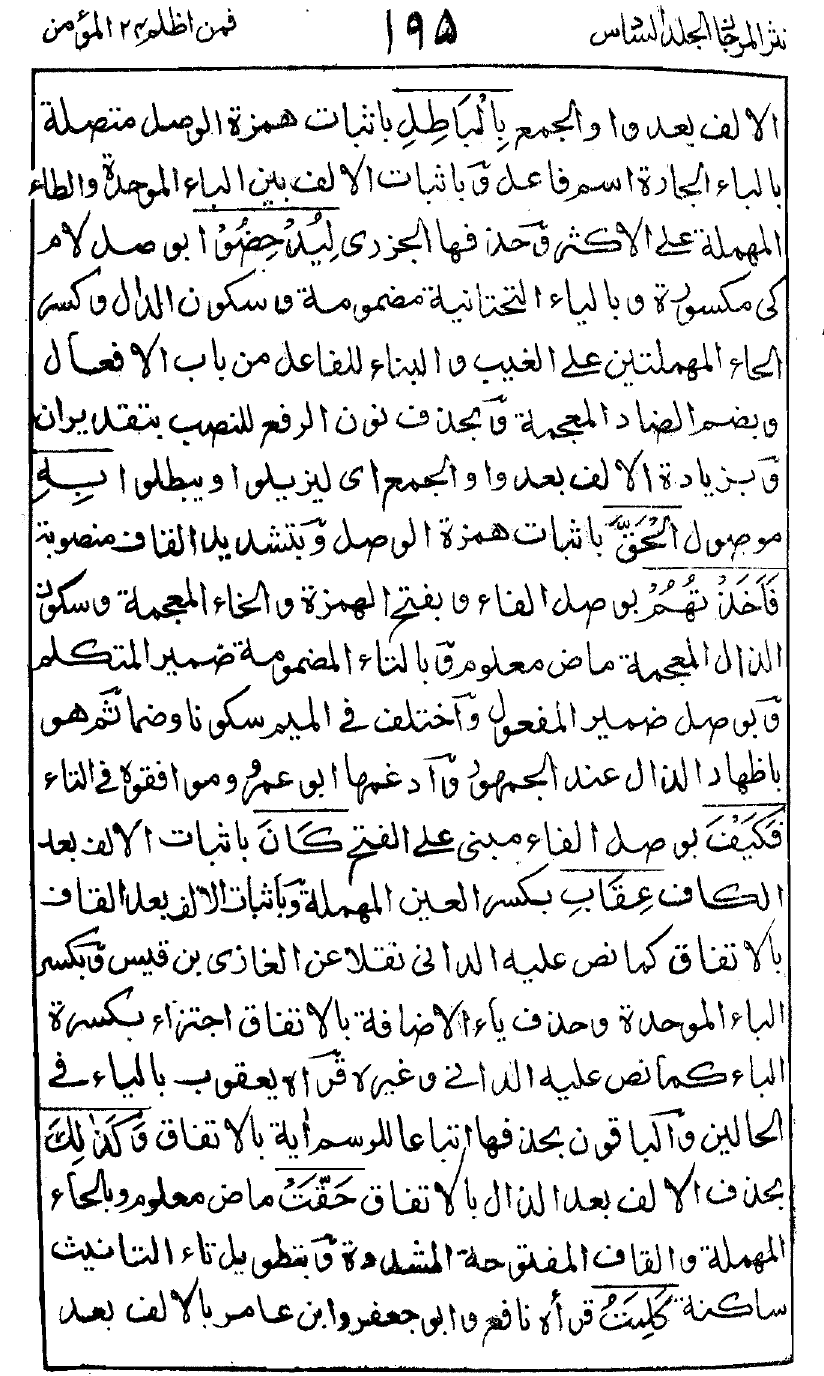 نثر المرجان الجلد السادس ١٩٥ فمن اظلم ٢٤ المؤمن
الالف بعد واو الجمع بِالْبَاطِلِ باثبات همزة الوصل متصلة
بالباء الجارة اسم فاعل وَباثبات الالف بين الباء الموحدة والطاء
المهملة على الاكثر وَحذفها الجزرى لِيُدْحِضُوْا بوصل لام
كى مكسورة وبالياء التحتانية مضمومة وسكون الدال وكسر
الحاء المهملتين على الغيب والبناء للفاعل من باب الافعال
وبضم الضاد المعجمة وَبحذف نون الرفع للنصب بتقدير ان
وَبزيادة الالف بعد واو الجمع اى ليزيلوا ويبطلوا بِهِ
موصول الْحَقَّ باثبات همزة الوصل وَبتشديد القاف منصوبة
فَاَخَذْتُهُمْ بوصل الفاء وبفتح الهمزة والخاء المعجمة وسكون
الذال المعجمة ماض معلوم وَبالتاء المضمومة ضمير المتكلم
وَبوصل ضمير المفعول وَاختلف فى الميم سكونا وضما ثم هو
باظهار الذال عند الجمهور وَادغمها ابو عمرو وموافقوه فى التاء
فَكَيْفَ بوصل الفاء مبنى على الفتح كَانَ باثبات الالف بعد
الكاف عِقَابِ بكسر العين المهملة وَباثبات الالف بعد القاف
بالاتفاق كما نص عليه الدانى نقلا عن الغازى بن قيس وَبكسر
الباء الموحدة وحذف ياء الاضافة بالاتفاق اجتزاء بكسرة
الباء كما نص عليه الدانى وغيره قرأه يعقوب بالياء فى
الحالين وَالباقون بحذفها اتباعا للرسم أية بالاتفاق وَكَذٰلِكَ
بحذف الالف بعد الذال بالاتفاق حَقَّتْ ماض معلوم وبالحاء
المهملة والقاف المفتوحة المشددة وَبتطويل تاء التانيث
ساكنة كَلِمَتُ قرأه نافع وابو جعفر وابن عامر بالالف بعد